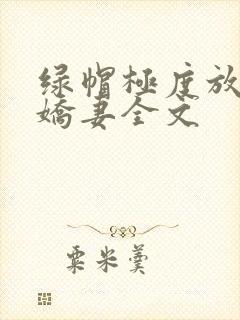 绿帽极度放
嬌妻全文
粟米羹